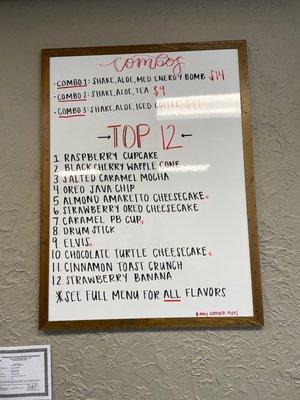 COMBOS
· COMBO 1: SHAKE, ALOE, MED ENERGY BOMB $14
· COMBO 2: SHAKE, ALOE, TEA $9
· COMBO 3: SHAKE, ALOE, ICED COFFEE $11
→ TOP 12 ←
1 RASPBERRY CUPCAKE
2 BLACK CHERRY WAFFLE CONE
3 SALTED CARAMEL MOCHA
4 OREO JAVA CHIP
5 ALMOND AMARETTO CHEESECAKE *
6 STRAWBERRY OREO CHEESECAKE
7 CARAMEL PB CUP *
8 DRUM STICK
9 ELVIS *
10 CHOCOLATE TURTLE CHEESECAKE *
11 CINNAMON TOAST CRUNCH
12 STRAWBERRY BANANA
* SEE FULL MENU FOR ALL FLAVORS
* MAY CONTAIN NUTS